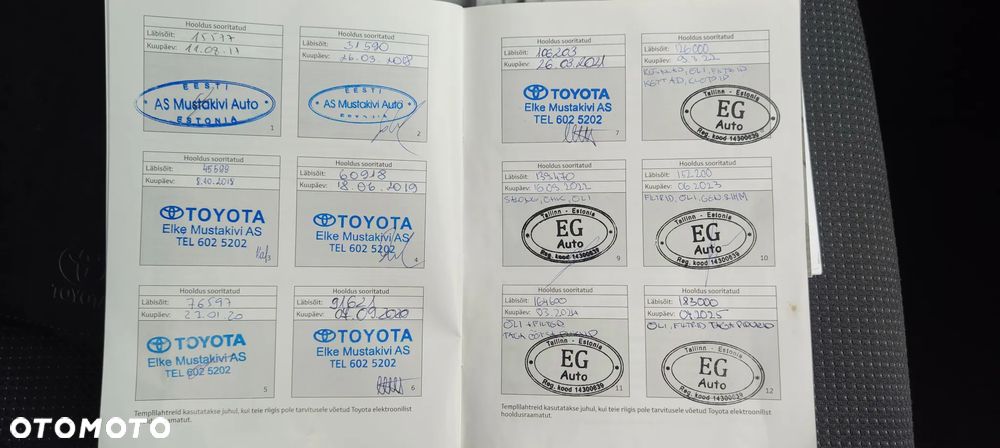 Hooldus sooritatud
Läbisõit: 15577
Kuupäev: 11.08.17
EESTI
AS Mustakivi Auto
ESTONIA
1
Hooldus sooritatud
Läbisõit: 31590
Kuupäev: 26.03.2018
EESTI
AS Mustakivi Auto
ESTONIA
2
Hooldus sooritatud
Läbisõit: 45599
Kuupäev: 8.10.2018
TOYOTA
Elke Mustakivi AS
TEL 602 5202
Hooldus sooritatud
Läbisõit: 60918
Kuupäev: 18.06.2019
TOYOTA
Elke Mustakivi AS
TEL 602 5202
4
Hooldus sooritatud
Läbisõit: 76597
Kuupäev: 27.01.20
TOYOTA
Elke Mustakivi AS
TEL 602 5202
5
Hooldus sooritatud
Läbisõit: 91621
Kuupäev: 07.09.2020
TOYOTA
Elke Mustakivi AS
TEL 602 5202
6
Templilahtreid kasutatakse juhul, kui teie riigis pole tarvitusele võetud Toyota elektroonilist
hooldusraamatut.
Hooldus sooritatud
Läbisõit: 106203
Kuupäev: 26.03.2021
TOYOTA
Elke Mustakivi AS
TEL 602 5202
7
Hooldus sooritatud
Läbisõit: 126000
Kuupäev:
OLI, FILTRID
Tallinn - Estonia
EG
Auto
Reg. kood 14300639
Hooldus sooritatud
Läbisõit: 139470
Kuupäev: 16.09.2022
OLI
Tallinn - Estonia
EG
Auto
Reg. kood 14300639
9
Hooldus sooritatud
Läbisõit: 152200
Kuupäev: 06.2023
FILTRID, OLI, GEN. RIHM
Tallinn - Estonia
EG
Auto
Reg. kood 14300639
10
Hooldus sooritatud
Läbisõit: 164600
Kuupäev: 03.2024
OLI + FILTER
TAGA
Tallinn - Estonia
EG
Auto
Reg. kood 14300639
11
Hooldus sooritatud
Läbisõit: 183000
Kuupäev: 04.2025
OLI, FILTRID TAGA
Tallinn - Estonia
EG
Auto
Reg. kood 14300639
12
Templilahtreid kasutatakse juhul, kui teie riigis pole tarvitusele võetud Toyota elektroonilist
hooldusraamatut.
TOYOTA
OTOMOTO